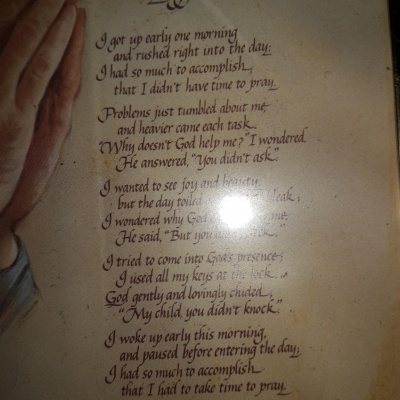 I got up early one morning
and rushed right into the day;
I had so much to accomplish,
that I didn't have time to pray.
Problems just tumbled about me,
and heavier came each task.
"Why doesn't God help me?" I wondered.
He answered, "You didn't ask".
I wanted to see joy and beauty
but the day toiled
I wondered why God me;
He said, "But you
I tried to come into God's presence;
I used all my keys at the lock.
God gently and lovingly chided,
"My child, you didn't knock".
I woke up early this morning,
and paused before entering the day;
I had so much to accomplish
that I had to take time to pray.